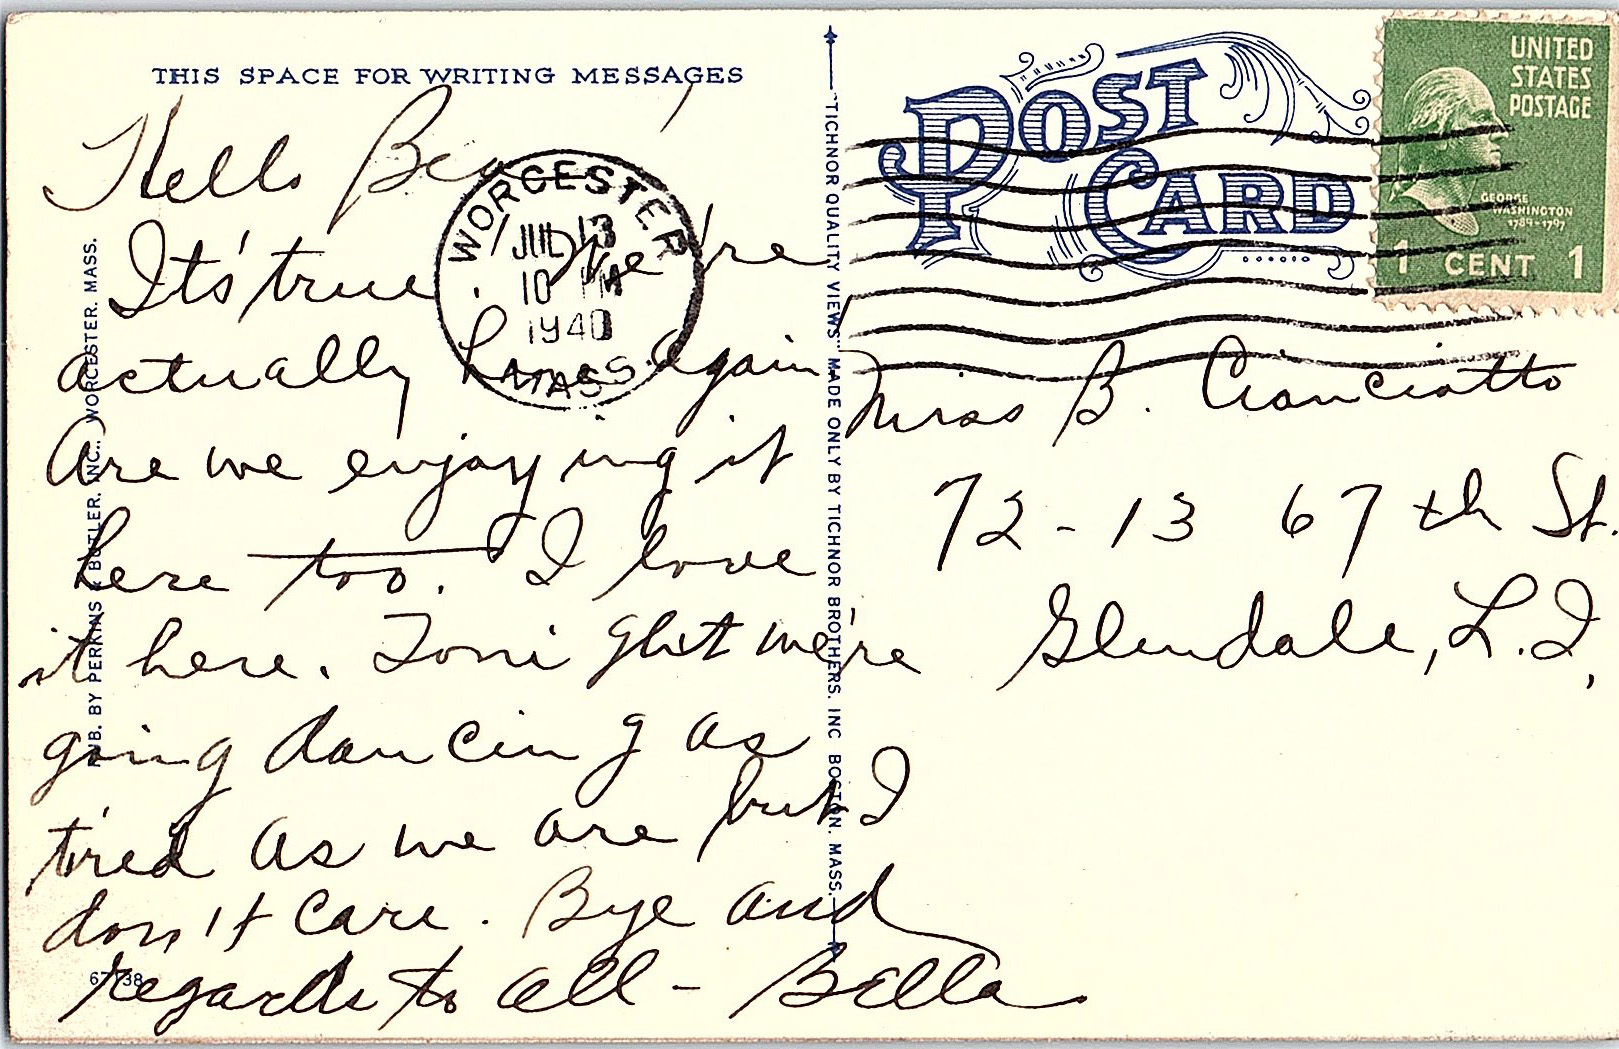 THIS SPACE FOR WRITING MESSAGES
Hello Bea,
It's true. We're
actually again
Are we enjoying it
here too. I love
it here. Toni ghit we're
going dancing as
tired as we are but I
don't care. Bye and
regards to all - Bella
PUB. BY PERKINS & BUTLER. INC., WORCESTER. MASS.
WORCESTER
JUL 13
10 PM
1940
MASS.
"TICHNOR QUALITY VIEWS" MADE ONLY BY TICHNOR BROTHERS. INC BOSTON. MASS.
POST
CARD
UNITED
STATES
POSTAGE
GEORGE
WASHINGTON
1789-1797
1 CENT 1
Miss B. Cianciotto
72-13 67th St.
Glendale, L.I,